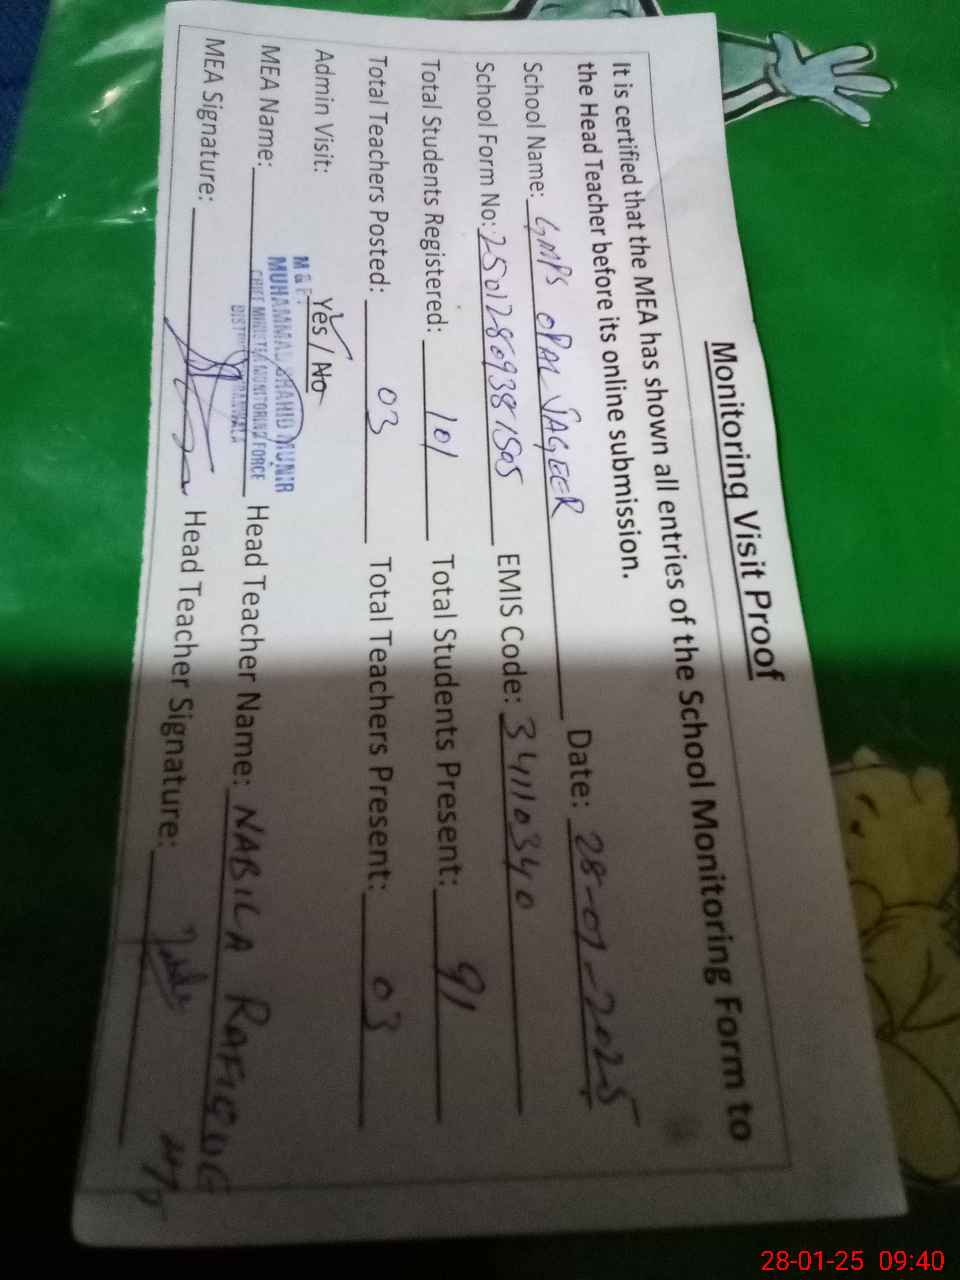 Monitoring Visit Proof
It is certified that the MEA has shown all entries of the School Monitoring Form to
the Head Teacher before its online submission.
School Name: GMPS OPAL SAGEER Date: 28-01-2025
School Form No: 25012809381505 EMIS Code: 34110340
Total Students Registered: 101 Total Students Present: 91
Total Teachers Posted: 03 Total Teachers Present: 03
Admin Visit: Yes / No
M & E
MUHAMMAD SHAHID MUNIR
CHIEF MINISTER MONITORING FORCE
MEA Name: Head Teacher Name: NABILA RAFIQUE
MEA Signature: Head Teacher Signature:
28-01-25 09:40